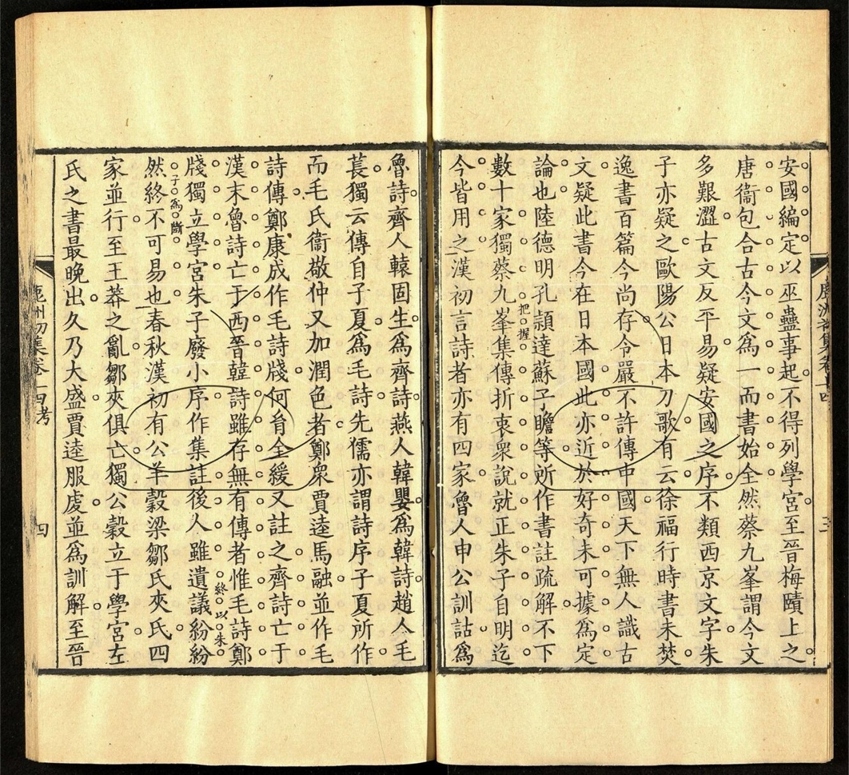 安國編定以巫蠱事起不得列學宮至晉梅賾上之
唐衞包合古今文爲一而書始全然蔡九峯謂今文
多艱澀古文反平易疑安國之序不類西京文字朱
子亦疑之歐陽公日本刀歌有云徐福行時書未焚
逸書百篇今尚存令嚴不許傳中國天下無人識古
文疑此書今在日本國此亦近於好奇未可據爲定
論也陸德明孔頴達蘇子瞻等所作書註疏解不下
把握
數十家獨蔡九峯集傳折衷衆說就正朱子自明迄
今皆用之漢初言詩者亦有四家魯人申公訓詁爲
魯詩齊人轅固生爲齊詩燕人韓嬰爲韓詩趙人毛
萇獨云傳自子夏爲毛詩先儒亦謂詩序子夏所作
而毛氏衞敬仲又加潤色者鄭衆賈逵馬融並作毛
詩傳鄭康成作毛詩牋何肙全緩又註之齊詩亡于
漢末魯詩亡于西晉韓詩雖存無有傳者惟毛詩鄭
終以朱
牋獨立學宮朱子廢小序作集註後人雖遺議紛紛
子爲斷
然終不可易也春秋漢初有公羊穀梁鄒氏夾氏四
家並行至王莽之亂鄒夾俱亡獨公穀立于學宮左
氏之書最晚出久乃大盛賈逵服虔並爲訓解至晉
鹿洲初集卷十四考
四